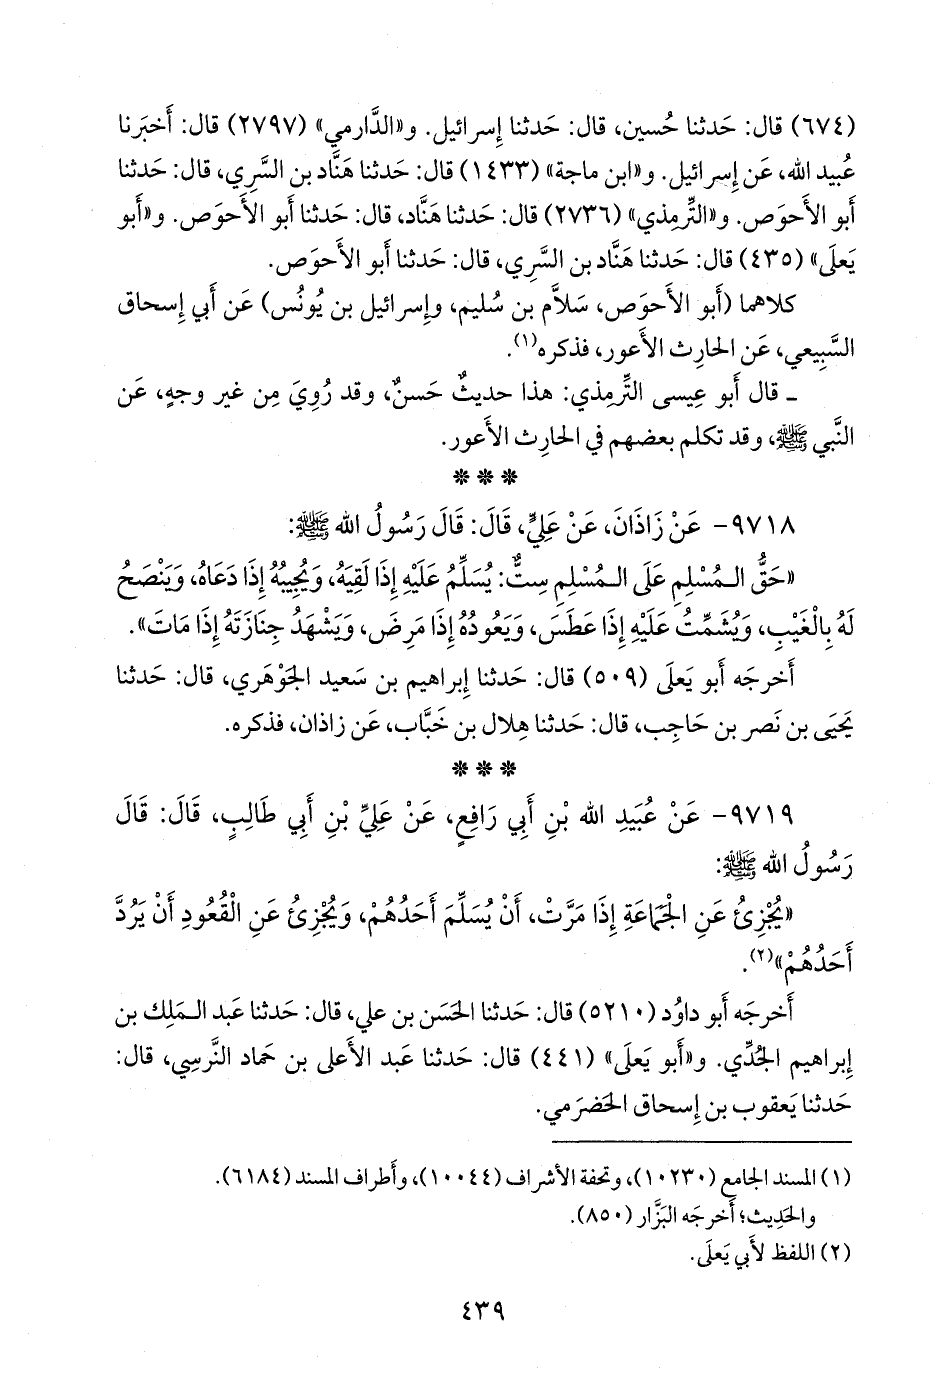 (٦٧٤) قال: حَدثنا حُسين، قال: حَدثنا إِسرائيل. و«الدَّارمي» (٢٧٩٧) قال: أَخبَرنا
عُبيد الله، عَن إِسرائيل. و«ابن ماجة» (١٤٣٣) قال: حَدثنا هَنَّاد بن السَّري، قال: حَدثنا
أَبو الأَحوَص. و«التِّرمِذي» (٢٧٣٦) قال: حَدثنا هَنَّاد، قال: حَدثنا أَبو الأَحوَص. و«أَبو
يَعلَى» (٤٣٥) قال: حَدثنا هَنَّاد بن السَّري، قال: حَدثنا أَبو الأَحوَص.
كلاهما (أَبو الأَحوَص، سَلاَّم بن سُليم، وإِسرائيل بن يُونُس) عَن أَبي إِسحاق
السَّبِيعي، عَن الحارِث الأَعور، فذكره(١).
ـ قال أَبو عِيسى التِّرمِذي: هذا حديثٌ حَسنٌ، وقد رُوِيَ مِن غير وجهٍ، عَن
النَّبي ﷺ، وقد تكلم بعضهم في الحارِث الأَعور.
* * *
٩٧١٨- عَنْ زَاذَانَ، عَنْ عَلِيٍّ، قَالَ: قَالَ رَسُولُ الله ﷺ:
«حَقُّ الـمُسْلِمِ عَلَى الـمُسْلِمِ سِتٌّ: يُسَلِّمُ عَلَيْهِ إِذَا لَقِيَهُ، وَيُجِيبُهُ إِذَا دَعَاهُ، وَيَنْصَحُ
لَهُ بِالْغَيْبِ، وَيُشَمِّتُ عَلَيْهِ إِذَا عَطَسَ، وَيَعُودُهُ إِذَا مَرِضَ، وَيَشْهَدُ جِنَازَتَهُ إِذَا مَاتَ».
أَخرجَه أَبو يَعلَى (٥٠٩) قال: حَدثنا إِبراهيم بن سَعيد الجَوْهَري، قال: حَدثنا
يَحيَى بن نَصر بن حَاجِب، قال: حَدثنا هِلال بن خَبَّاب، عَن زاذان، فذكره.
* * *
٩٧١٩- عَنْ عُبَيدِ الله بْنِ أَبِي رَافِعٍ، عَنْ عَلِيِّ بْنِ أَبِي طَالِبٍ، قَالَ: قَالَ
رَسُولُ الله ﷺ:
«يُجْزِئُ عَنِ الجَمَاعَةِ إِذَا مَرَّتْ، أَنْ يُسَلِّمَ أَحَدُهُمْ، وَيُجْزِئُ عَنِ الْقُعُودِ أَنْ يَرُدَّ
أَحَدُهُمْ»(٢).
أَخرجَه أَبو داوُد (٥٢١٠) قال: حَدثنا الحَسَن بن علي، قال: حَدثنا عَبد الـمَلِك بن
إِبراهيم الجُدِّي. و«أَبو يَعلَى» (٤٤١) قال: حَدثنا عَبد الأَعلى بن حَماد النَّرسِي، قال:
حَدثنا يَعقوب بن إِسحاق الحَضرَمي.
(١) المسند الجامع (١٠٢٣٠)، وتحفة الأشراف (١٠٠٤٤)، وأَطراف المسند (٦١٨٤).
والحَدِيث؛ أَخرجَه البَزَّار (٨٥٠).
(٢) اللفظ لأَبي يَعلَى.
٤٣٩